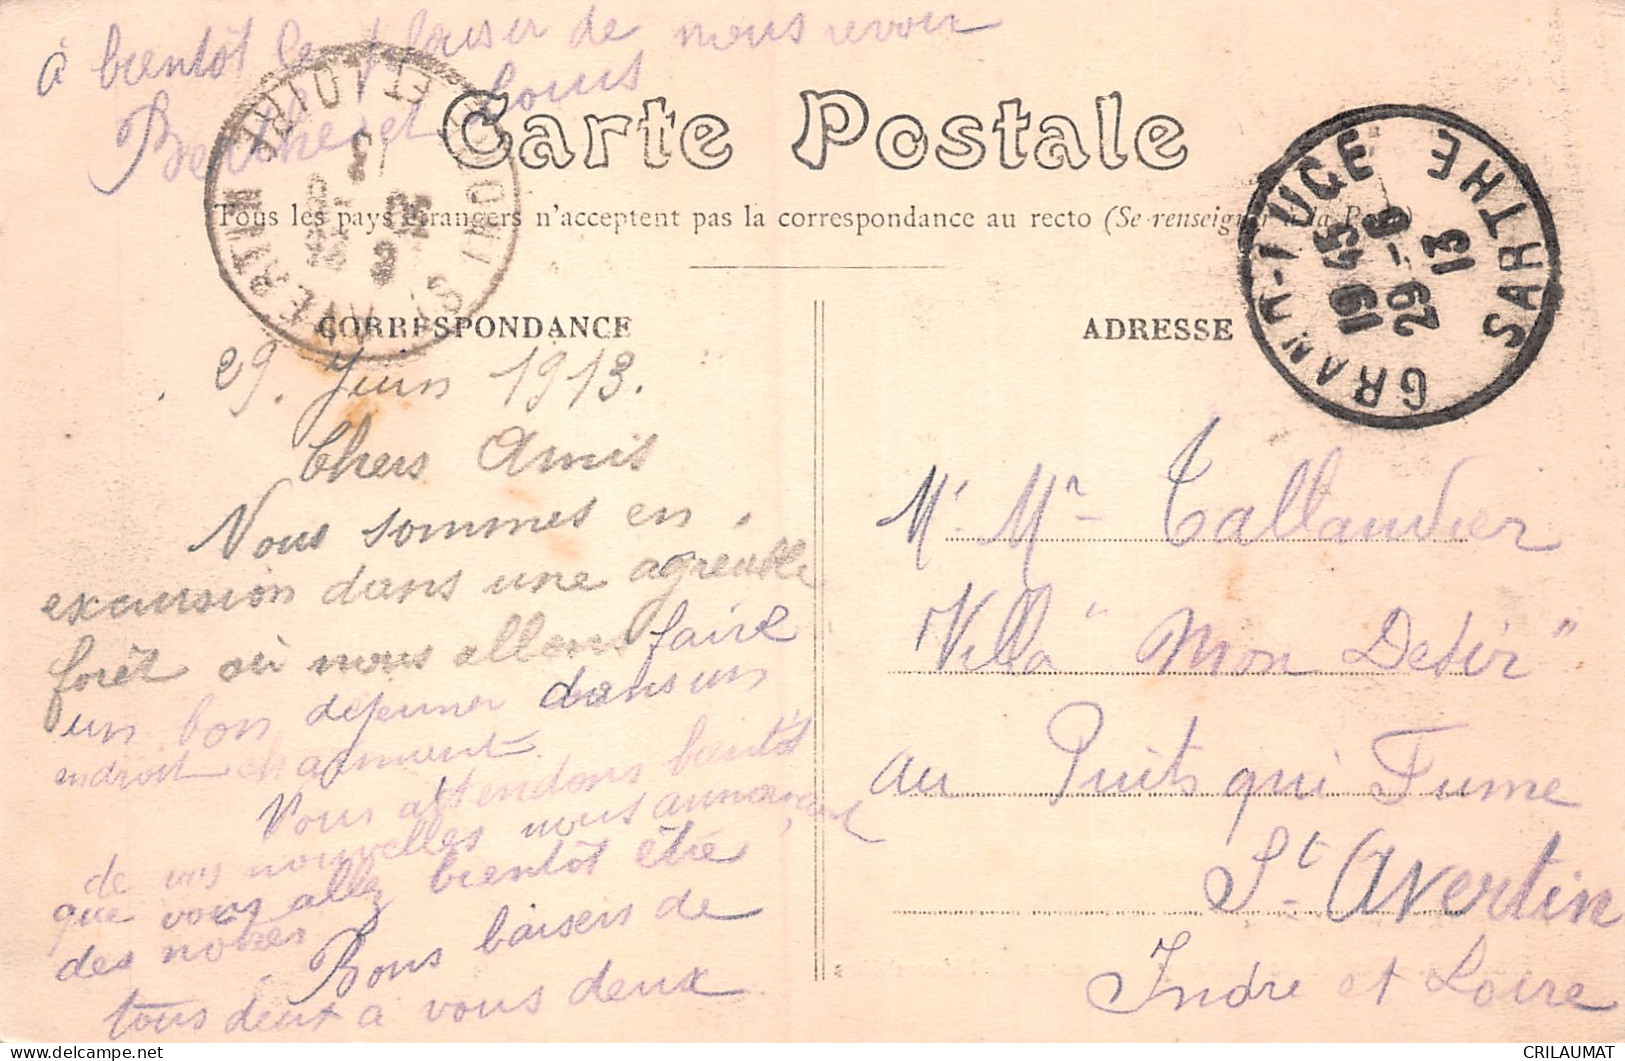 à bientôt le plaisir de nous revoir
Berthe et Louis
Carte Postale
Tous les pays étrangers n'acceptent pas la correspondance au recto (Se renseigner à la Poste)
ST AVERTIN
INDRE ET LOIRE
GRAND-LUCÉ
SARTHE
19 45
29 - 6
13
CORRESPONDANCE
29. Juin 1913.
Chers Amis
Nous sommes en
excursion dans une agreable
forêt où nous allons faire
un bon déjeuner dans un
endroit charmant
Vous attendons bientôt
de vos nouvelles nous annonçant
que vous allez bientôt être
des notres.
Bons baisers de
tous deux a vous deux
ADRESSE
Mr Mme Tallandier
Villa "Mon Desir"
au Puits qui Fume
St Avertin
Indre et Loire
CRILAUMAT